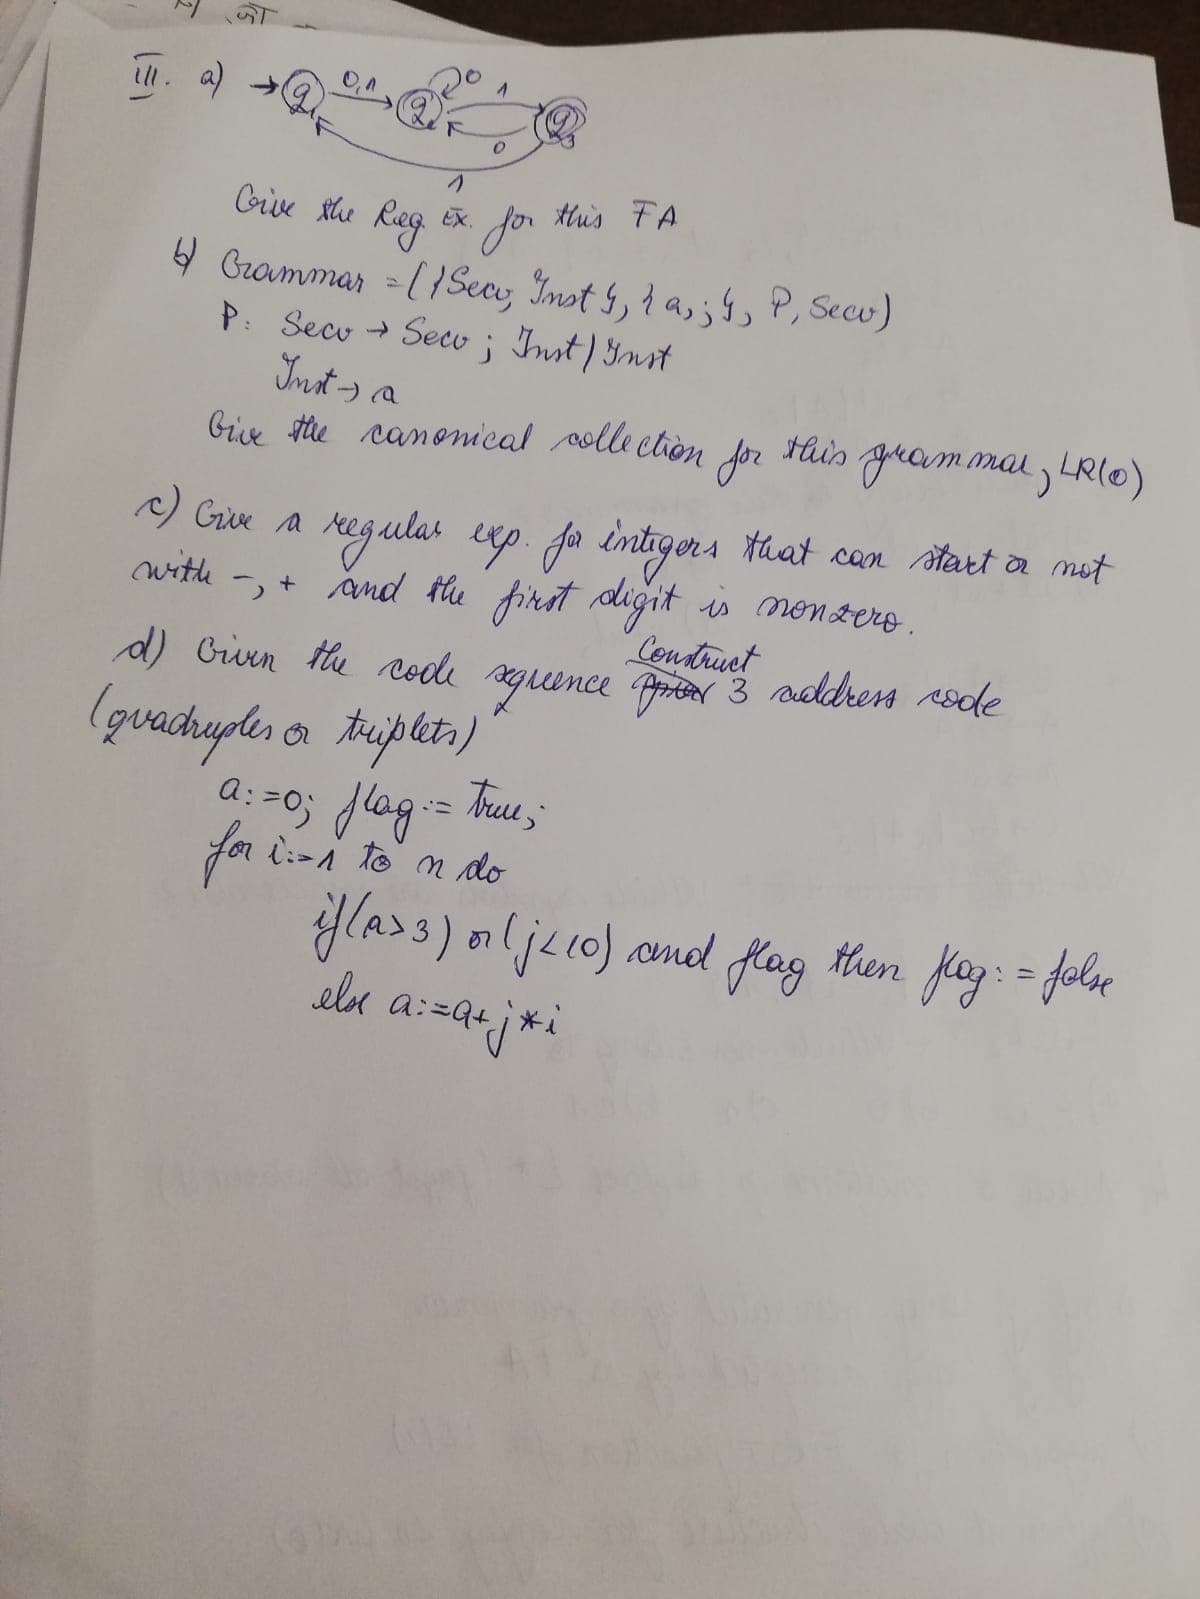 III. a) → q₁ 0,1 q₂ 0 1 q₃
0
1
Give the Reg. Ex. for this FA
b) Grammar = ({Secv, Inst}, {a, ;}, P, Secv)
P: Secv → Secv ; Inst | Inst
Inst → a
Give the canonical collection for this grammar, LR(0)
c) Give a regular exp. for integers that can start or not
with -, + and the first digit is nonzero.
d) Given the code sequence Construct 3 address code
(quadruples or triplets)
a:=0; flag:= true;
for i:=1 to n do
if(a>3) or (j<10) and flag then flag:= false
else a:=a+j*i